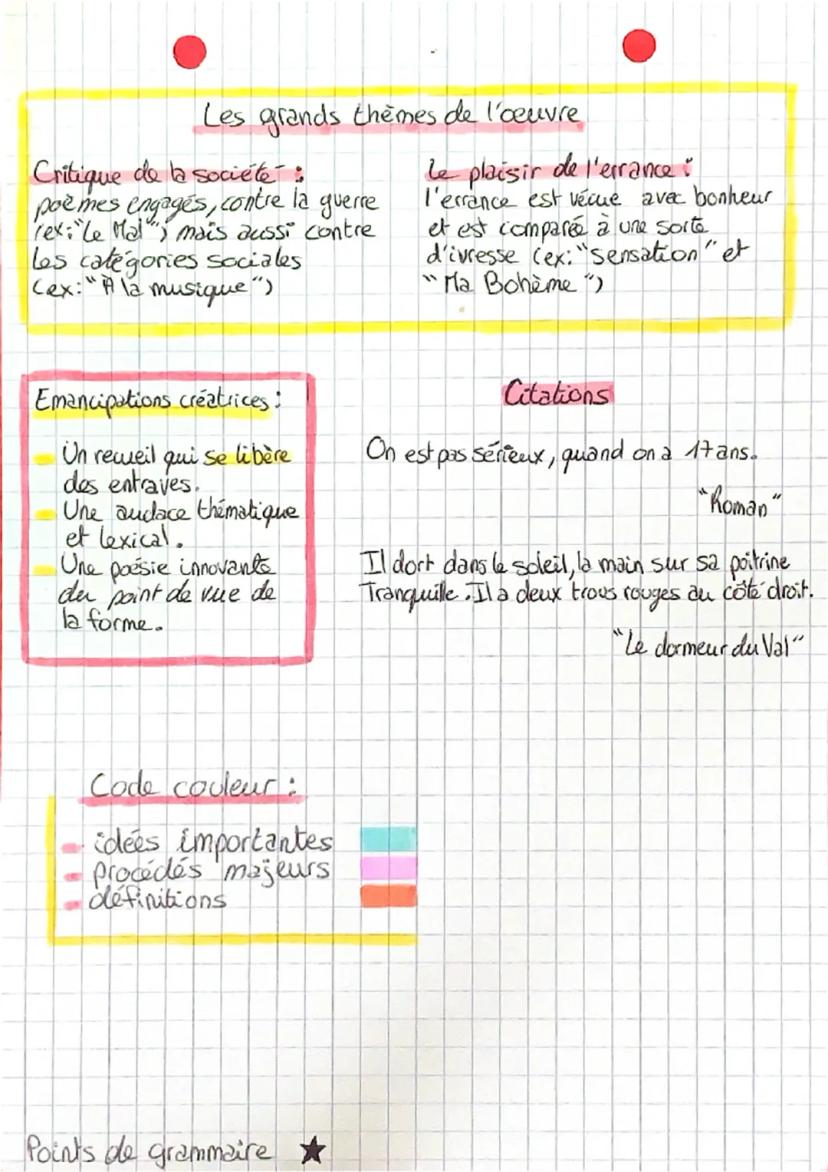 Les grands thèmes de l'œuvre
Critique de la société :
poèmes engagés, contre la guerre
(ex: "Le Mal"), mais aussi contre
les catégories sociales
(ex: "À la musique")
Le plaisir de l'errance :
l'errance est vécue avec bonheur
et est comparée à une sorte
d'ivresse (ex: "Sensation" et
"Ma Bohème")
Emancipations créatrices :
- Un recueil qui se libère
des entraves.
- Une audace thématique
et lexical.
- Une poésie innovante
du point de vue de
la forme.
Citations
On est pas sérieux, quand on a 17 ans.
"Roman"
Il dort dans le soleil, la main sur sa poitrine
Tranquille. Il a deux trous rouges au côté droit.
"Le dormeur du Val"
Code couleur :
- idées importantes
- procédés majeurs
- définitions
Points de grammaire ★